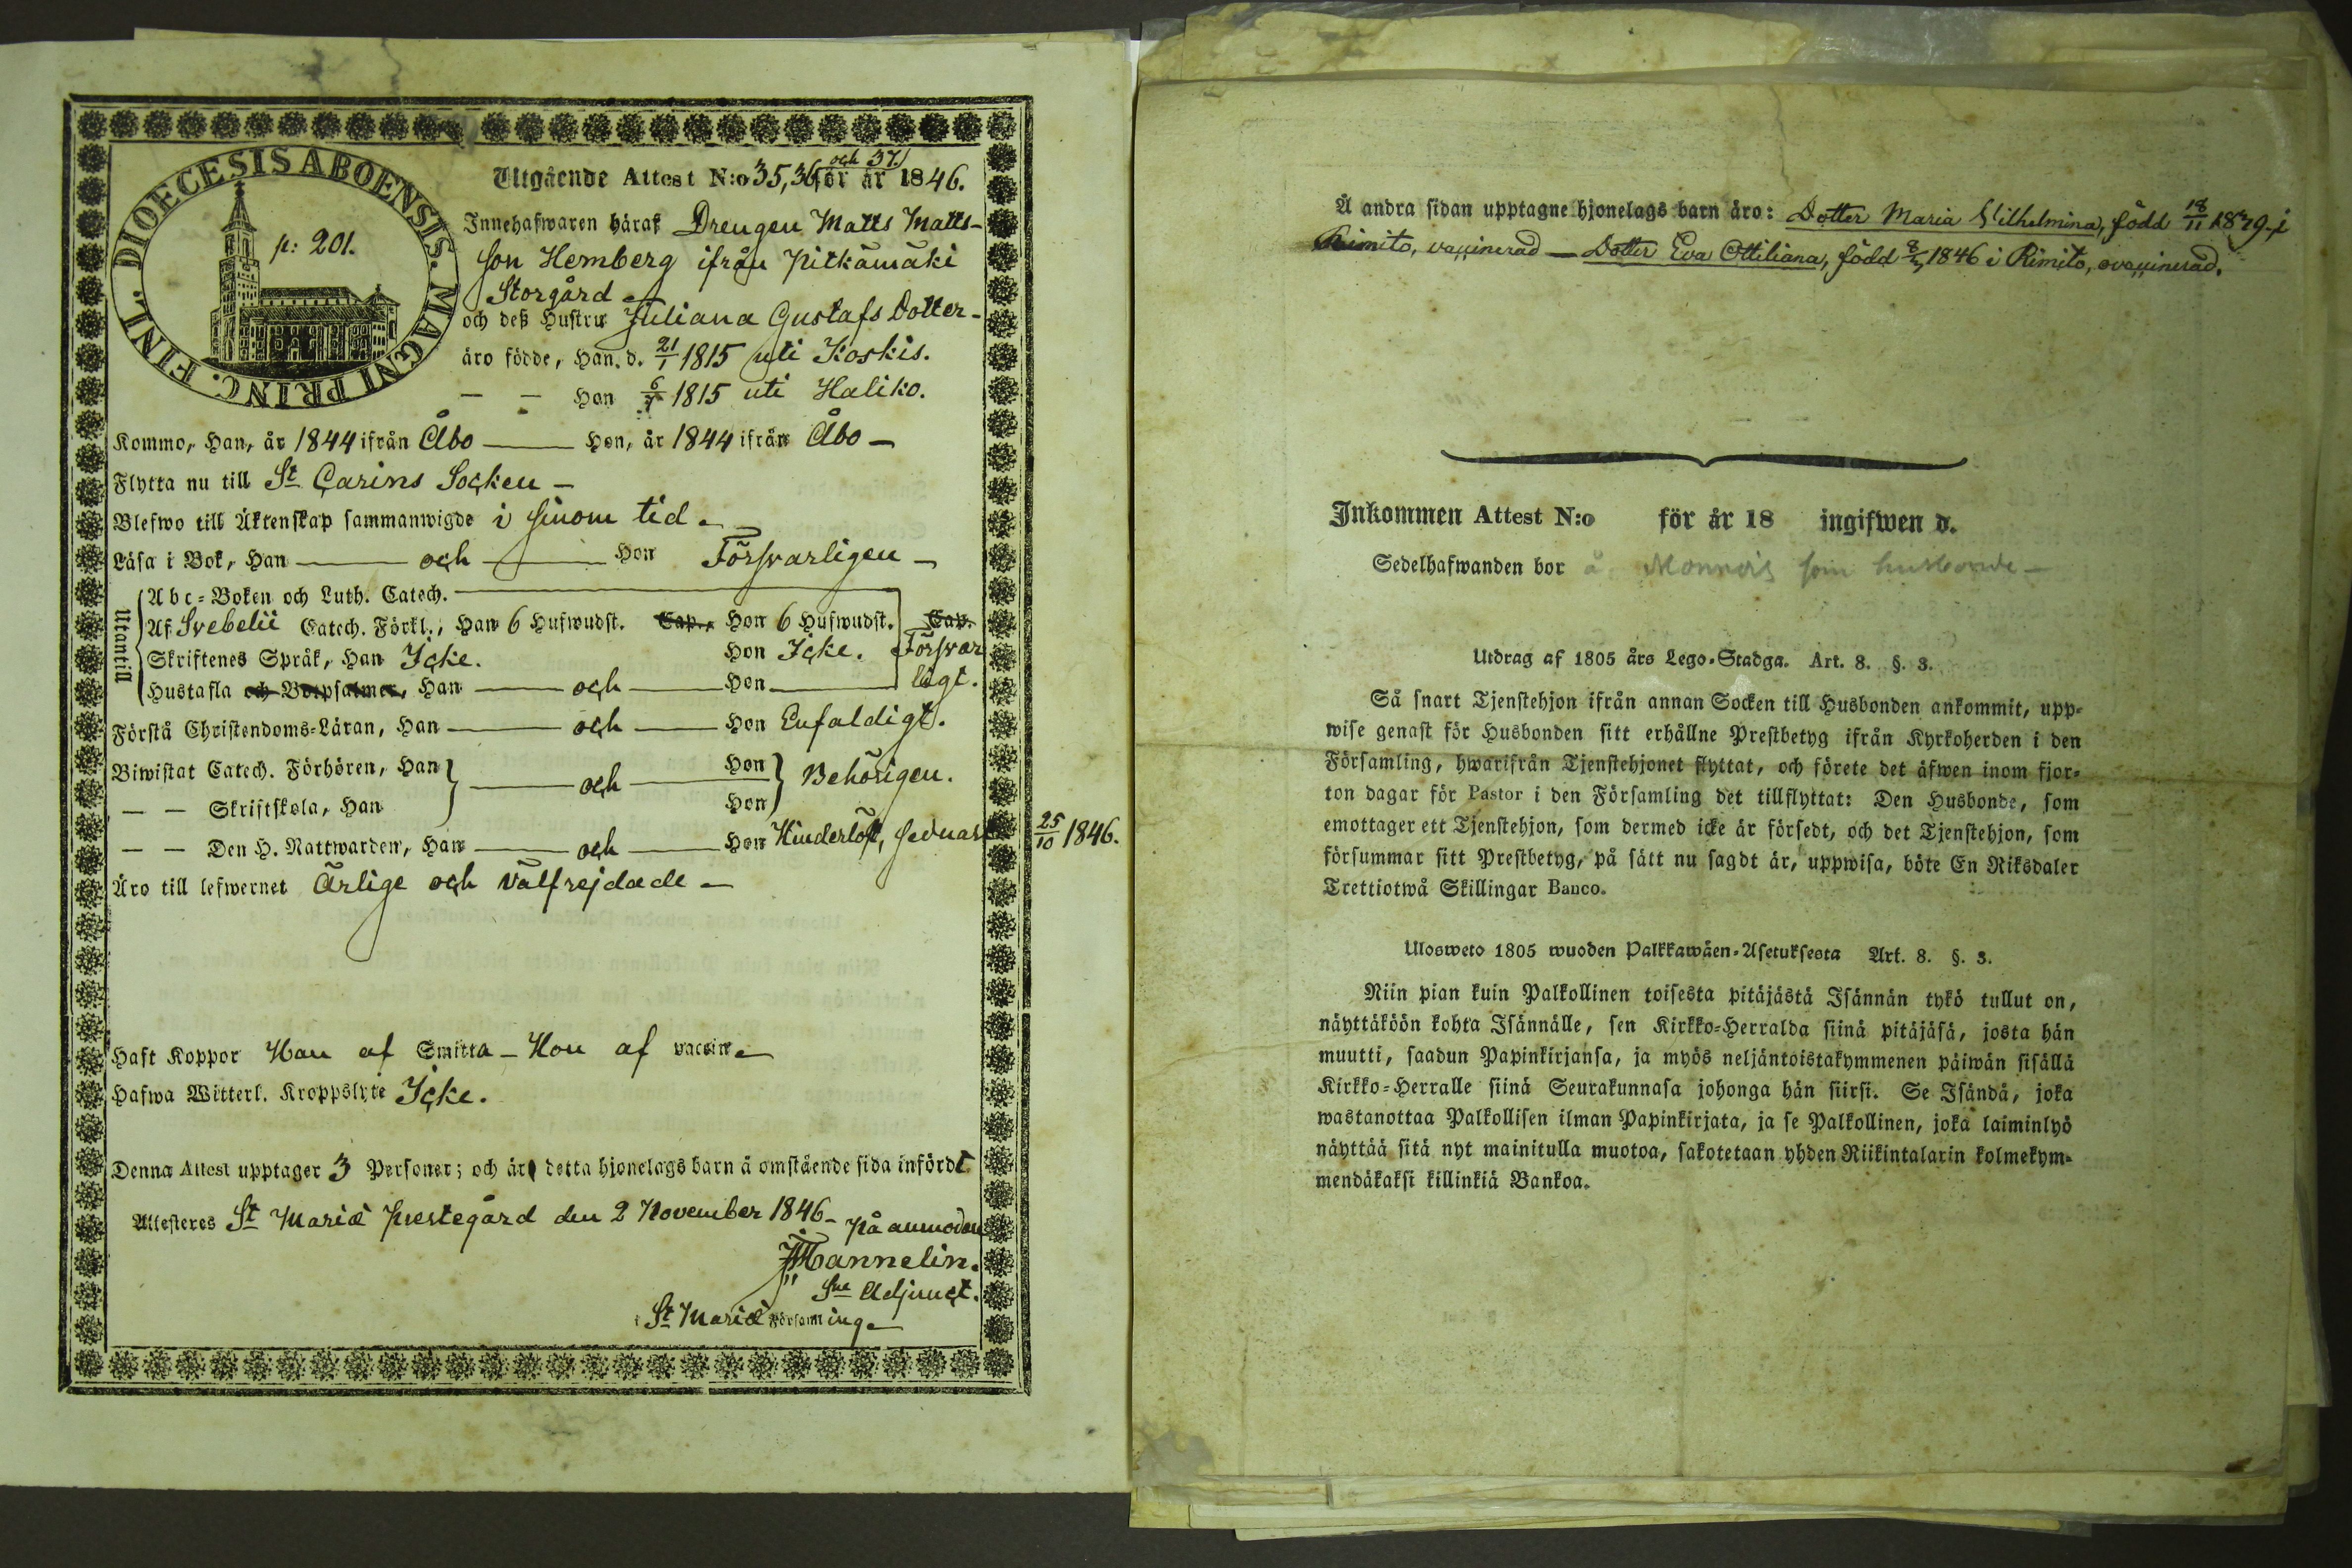 DIOECESIS ABOENSIS. MAGNI PRINC. FINL.
p: 201.
Utgående Attest N:o 35, 36 och 37. för år 1846.
Innehafwaren häraf Drengen Matts Matts-
son Hemberg ifrån Pitkämäki
Storgård
och deß Hustru Juliana Gustafs Dotter-
äro födde, Han. d. 21/1 1815 uti Koskis.
— — Hon 6/7 1815 uti Haliko.
Kommo, Han, år 1844 ifrån Åbo — Hon, år 1844 ifrån Åbo —
Flytta nu till St Carins Socken —
Blefwo till Äktenskap sammanwigde i sinom tid.
Läsa i Bok, Han — och — Hon Försvarligen —
Utantill
Abc-Boken och Luth. Catech. —
Af Svebelii Catech. Förkl., Han 6 Hufwudst. Cap., Hon 6 Hufwudst. Cap.
Skriftenes Språk, Han Icke. Hon Icke. Försvar
Hustafla och Botpsalmer, Han — och — Hon — ligt.
Förstå Christendoms-Läran, Han — och — Hon Enfaldigt.
Biwistat Catech. Förhören, Han — och — Hon Behörigen.
— — Skriftskola, Han Hon
— — Den H. Nattwarden, Han — och — Hon Hinderlöst, sednast 25/10 1846.
Äro till lefwernet Ärlige och Välfrejdade —
Haft Koppor Han af Smitta — Hon af vaccin —
Hafwa Witterl. Kroppslyte Icke.
Denna Attest upptager 3 Personer; och är detta hjonelags barn å omstående sida infördt
Attesteras St Mariæ Prestegård den 2 November 1846 — På anmodan
Mannelin.
Sne Adjunct.
i St Mariæ Församling —
Å andra sidan upptagne hjonelags barn äro: Dotter Maria Vilhelmina, född 18/11 1839 i
Rimito, vaccinerad — Dotter Eva Ottiliana, född 1846 i Rimito, ovaccinerad.
Inkommen Attest N:o för år 18 ingifwen d.
Sedelhafwanden bor å som husbonde —
Utdrag af 1805 års Lego-Stadga. Art. 8. §. 3.
Så snart Tjenstehjon ifrån annan Socken till Husbonden ankommit, upp-
wise genast för Husbonden sitt erhållne Prestbetyg ifrån Kyrkoherden i den
Församling, hwarifrån Tjenstehjonet flyttat, och förete det äfwen inom fjor-
ton dagar för Pastor i den Församling det tillflyttat: Den Husbonde, som
emottager ett Tjenstehjon, som dermed icke är försedt, och det Tjenstehjon, som
försummar sitt Prestbetyg, på sätt nu sagdt är, uppwisa, böte En Riksdaler
Trettiotwå Skillingar Banco.
Ulosweto 1805 wuoden Palkkawäen-Asetuksesta Art. 8. §. 3.
Niin pian kuin Palkollinen toisesta pitäjästä Isännän tykö tullut on,
näyttäköön kohta Isännälle, sen Kirkko-Herralda siinä pitäjäsä, josta hän
muutti, saadun Papinkirjansa, ja myös neljäntoistakymmenen päiwän sisällä
Kirkko-Herralle siinä Seurakunnasa johonga hän siirsi. Se Isändä, joka
wastanottaa Palkollisen ilman Papinkirjata, ja se Palkollinen, joka laiminlyö
näyttää sitä nyt mainitulla muotoa, sakotetaan yhden Riikintalarin kolmekym-
mendäkaksi killinkiä Bankoa.